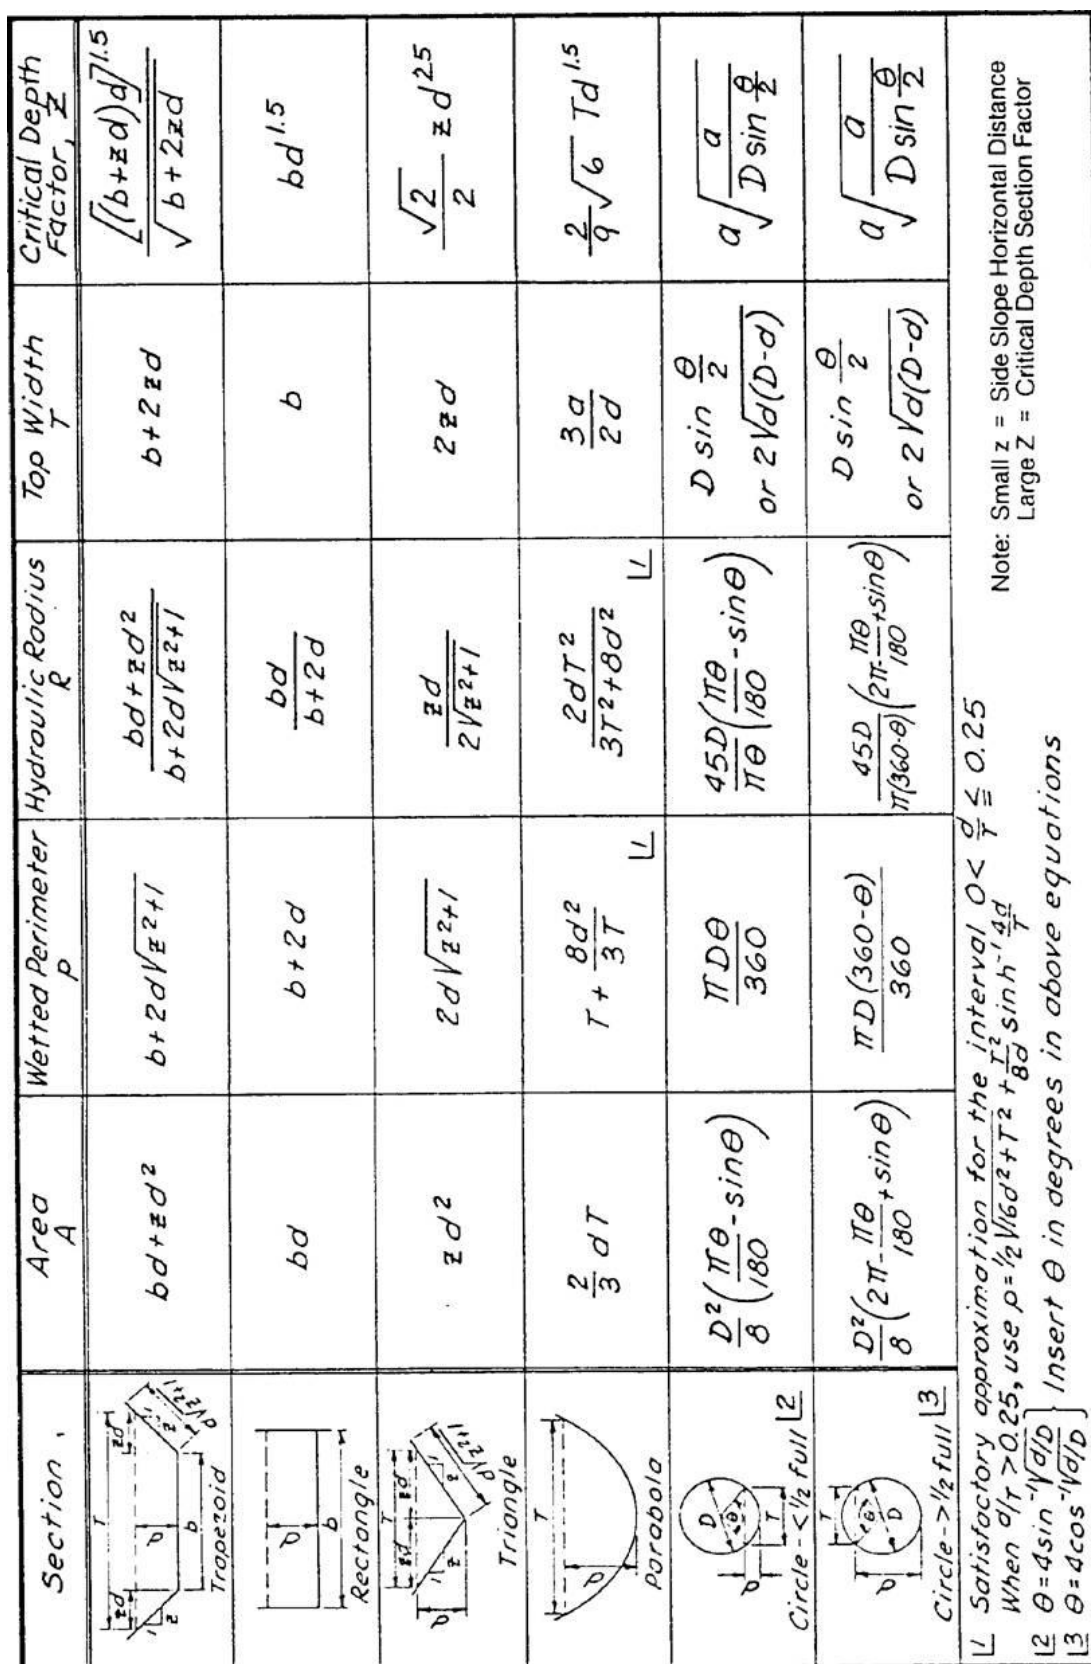 Section,
Area
A
Wetted Perimeter
P
Hydraulic Radius
R
Top Width
T
Critical Depth
Factor, Z
T
zd
zd
d
1
z
1
z
d√z²+1
b
Trapezoid
bd+zd²
b+2d√z²+1
bd+zd²
b+2d√z²+1
b+2zd
[(b+zd)d]^1.5
√b+2zd
d
b
Rectangle
bd
b+2d
bd
b+2d
b
bd^1.5
T
zd
zd
d
1
z
1
z
d√z²+1
Triangle
zd²
2d√z²+1
zd
2√z²+1
2zd
√2
2
zd^2.5
T
d
Parabola
2/3 dT
T + 8d²/3T
1
2dT²
3T²+8d²
1
3a
2d
2/9 √6 Td^1.5
D
θ
d
T
Circle - < 1/2 full 2
D²/8 (πθ/180 - sinθ)
πDθ
360
45D/πθ (πθ/180 - sinθ)
D sin θ/2
or 2√d(D-d)
a√a/(D sin θ/2)
T
θ
D
d
Circle - > 1/2 full 3
D²/8 (2π - πθ/180 + sinθ)
πD(360-θ)
360
45D/π(360-θ) (2π - πθ/180 + sinθ)
D sin θ/2
or 2√d(D-d)
a√a/(D sin θ/2)
1 Satisfactory approximation for the interval 0 < d/T ≦ 0.25
When d/T > 0.25, use p = 1/2 √16d²+T² + T²/8d sinh⁻¹ 4d/T
2 θ = 4sin⁻¹√d/D
3 θ = 4cos⁻¹√d/D
} Insert θ in degrees in above equations
Note: Small z = Side Slope Horizontal Distance
Large Z = Critical Depth Section Factor